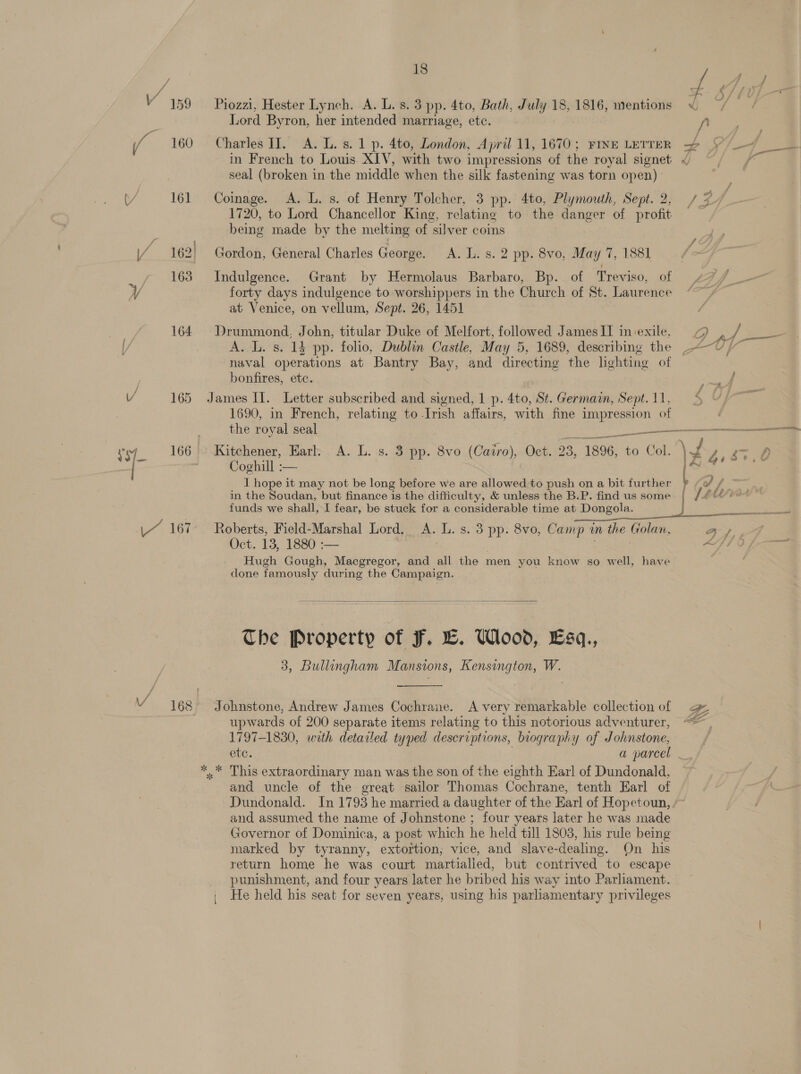 18
159 Piozzi, Hester Lynch. A. L. s. 3 pp. 4to, Bath, July 18, 1816, mentions
Lord Byron, her intended marriage, etc.
160 Charles II. A. L. s. 1 p. 4to, London, April 11, 1670; FINE LETTER
in French to Louis XIV, with two impressions of the royal signet
seal (broken in the middle when the silk fastening was torn open)
161 Coinage. A. L. s. of Henry Tolcher, 3 pp. 4to, Plymouth, Sept. 2,
1720, to Lord Chancellor King, relating to the danger of profit
being made by the melting of silver coins
162 Gordon, General Charles George. A. L. s. 2 pp. 8vo, May 7, 1881
163 Indulgence. Grant by Hermolaus Barbaro, Bp. of Treviso, of
forty days indulgence to worshippers in the Church of St. Laurence
at Venice, on vellum, Sept. 26, 1451
164 Drummond, John, titular Duke of Melfort, followed James II in exile,
A. L. s. 1½ pp. folio, Dublin Castle, May 5, 1689, describing the
naval operations at Bantry Bay, and directing the lighting of
bonfires, etc.
165 James II. Letter subscribed and signed, 1 p. 4to, St. Germain, Sept. 11,
1690, in French, relating to Irish affairs, with fine impression of
the royal seal
166 Kitchener, Earl. A. L. s. 3 pp. 8vo (Cairo), Oct. 23, 1896, to Col.
Coghill :—
I hope it may not be long before we are allowed to push on a bit further
in the Soudan, but finance is the difficulty, & unless the B.P. find us some
funds we shall, I fear, be stuck for a considerable time at Dongola.
167 Roberts, Field-Marshal Lord. A. L. s. 3 pp. 8vo, Camp in the Golan,
Oct. 13, 1880 :—
Hugh Gough, Macgregor, and all the men you know so well, have
done famously during the Campaign.
The Property of F. E. Wood, Esq.,
3, Bullingham Mansions, Kensington, W.
168 Johnstone, Andrew James Cochrane. A very remarkable collection of
upwards of 200 separate items relating to this notorious adventurer,
1797-1830, with detailed typed descriptions, biography of Johnstone,
etc. a parcel
*** This extraordinary man was the son of the eighth Earl of Dundonald,
and uncle of the great sailor Thomas Cochrane, tenth Earl of
Dundonald. In 1793 he married a daughter of the Earl of Hopetoun,
and assumed the name of Johnstone; four years later he was made
Governor of Dominica, a post which he held till 1803, his rule being
marked by tyranny, extortion, vice, and slave-dealing. On his
return home he was court martialled, but contrived to escape
punishment, and four years later he bribed his way into Parliament.
He held his seat for seven years, using his parliamentary privileges